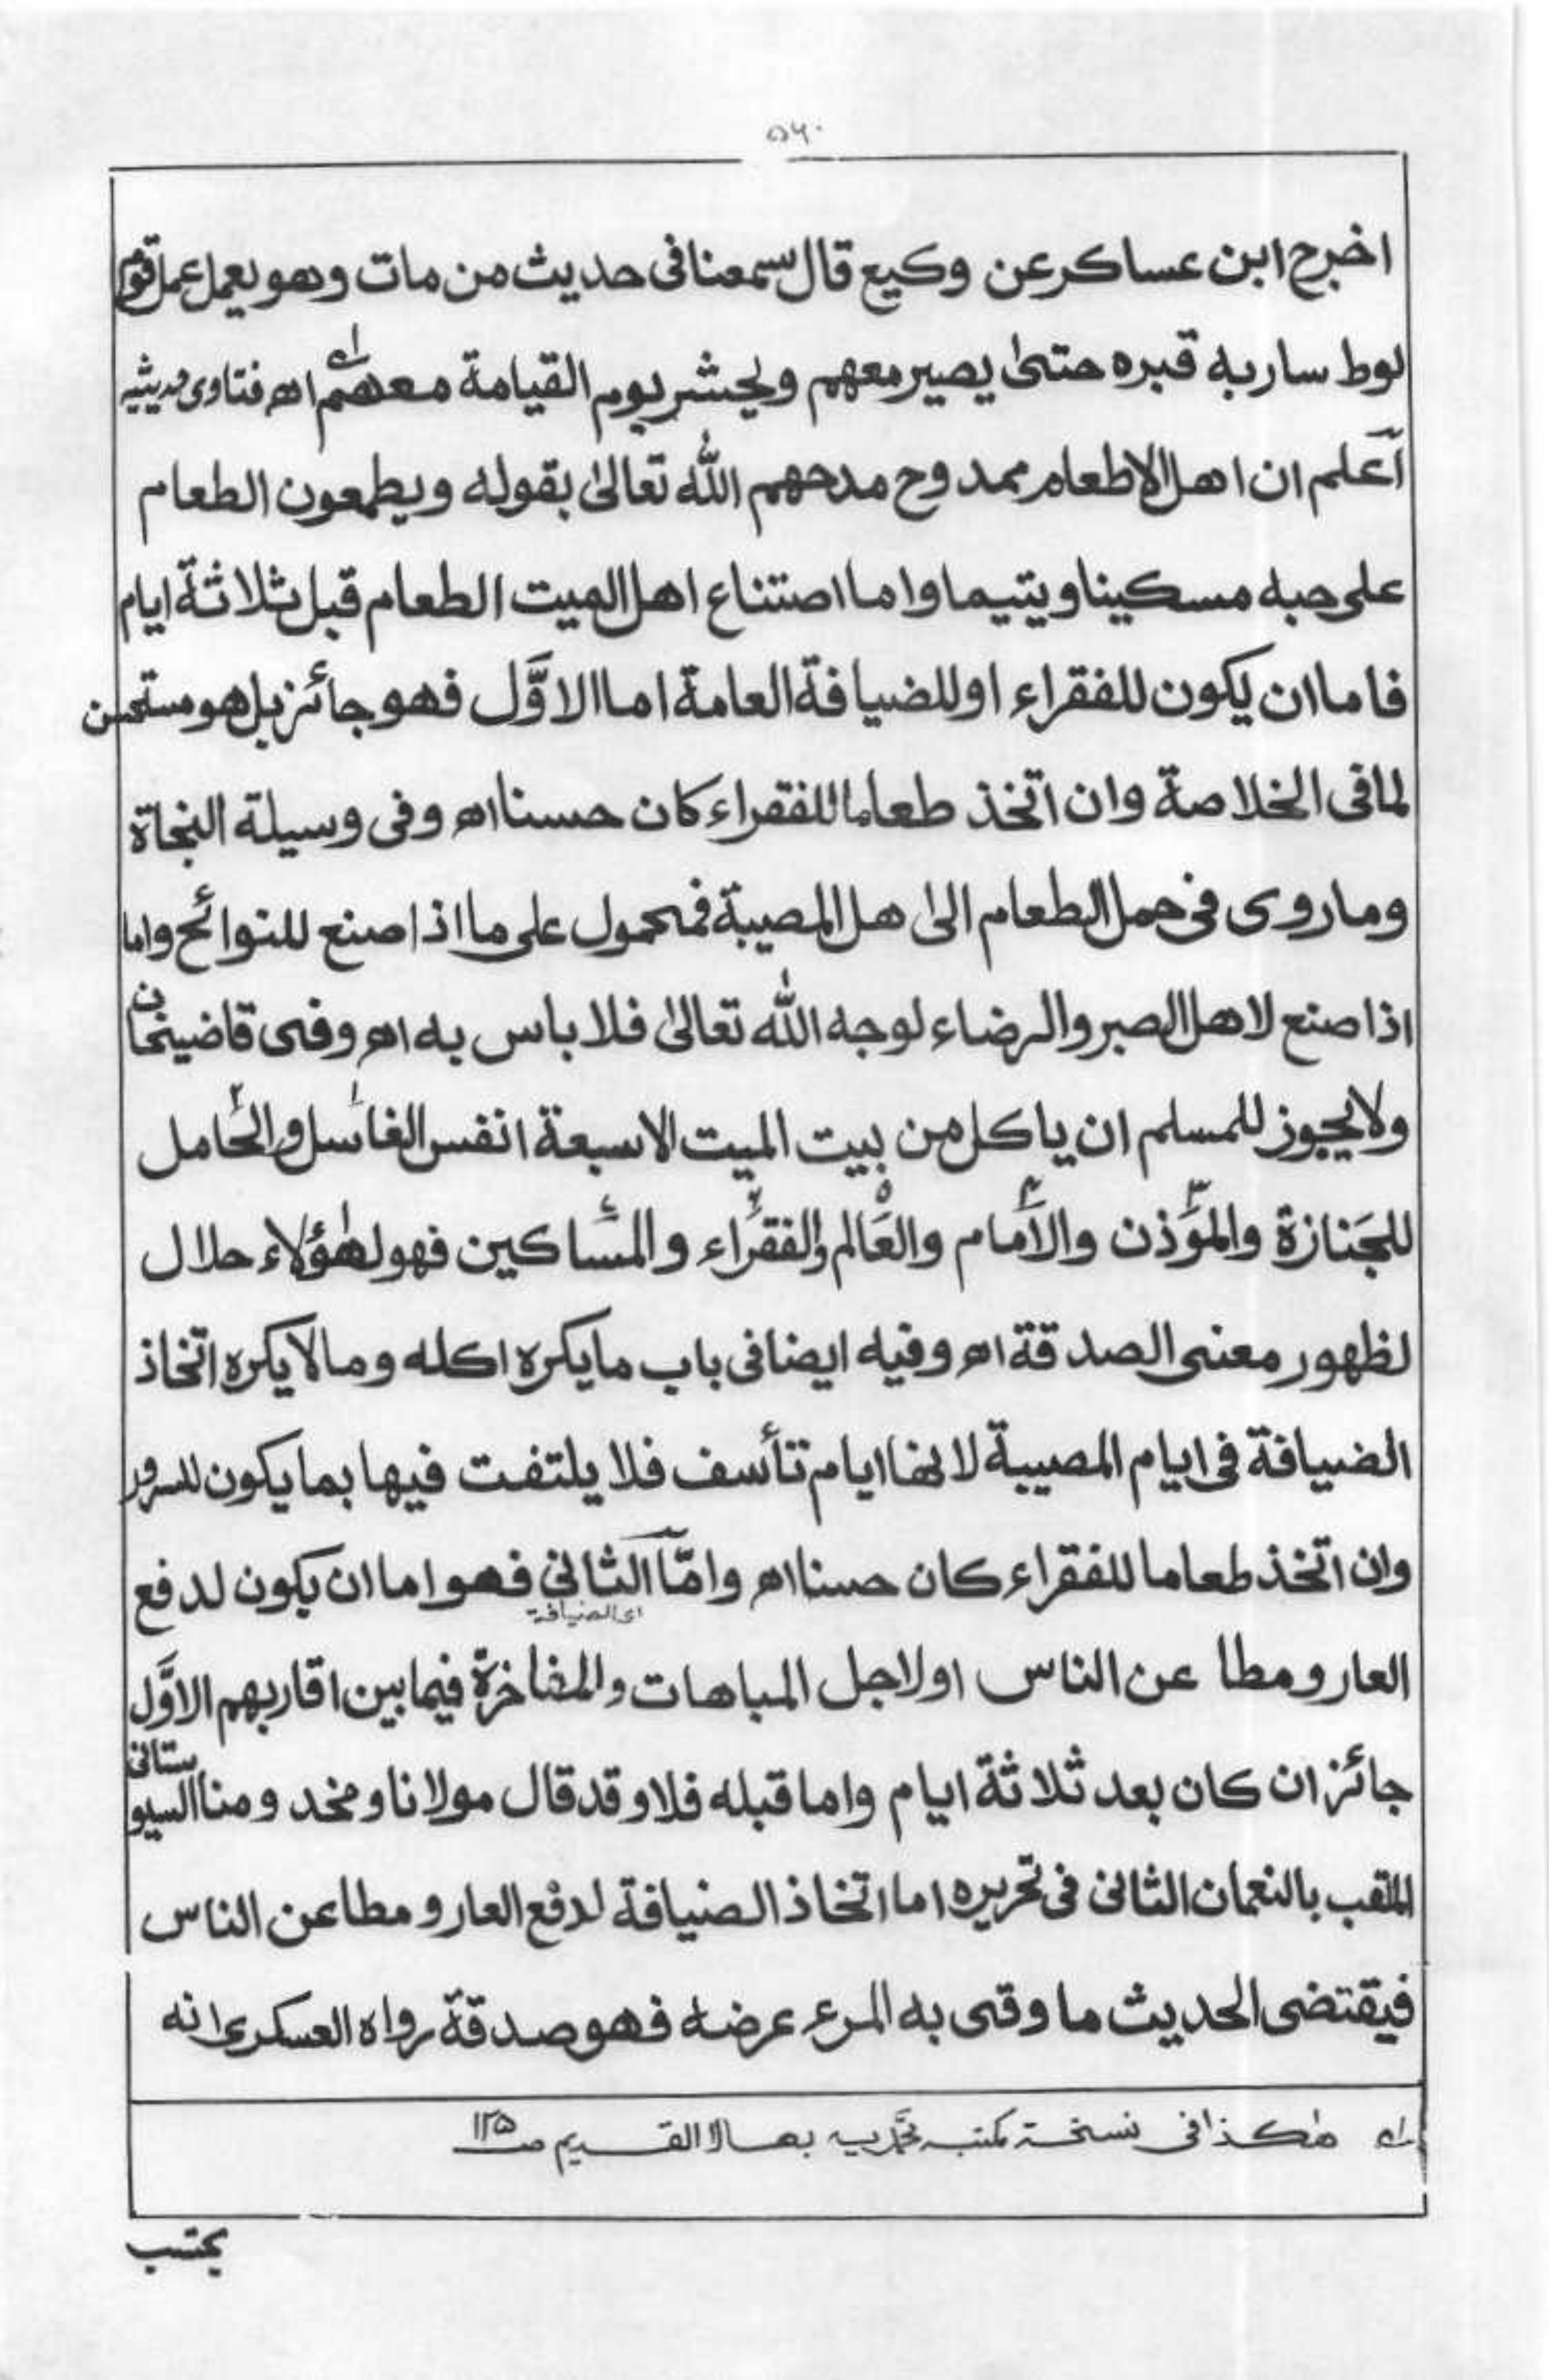 ٥٦٠
اخرج ابن عساكر عن وكيع قال سمعنا فى حديث من مات وهو يعمل عمل قوم
لوط سار به قبره حتى يصير معهم ويحشر يوم القيامة معهم اھ فتاوى حديثيه
اعلم ان اهل الاطعام ممدوح مدحهم الله تعالىٰ بقوله ويطمعون الطعام
على حبه مسكينا ويتيما واما اصتناع اهل الميت الطعام قبل ثلاثة ايام
فاما ان يكون للفقراء او للضيافة العامة اما الاوَّل فهو جائز بل هو مستحسن
لما فى الخلاصة وان اتخذ طعاما للفقراء كان حسنا اھ وفى وسيلة النجاة
وما روى فى حمل الطعام الى اهل المصيبة فمحمول على ما اذا صنع للنوائح واما
اذا صنع لاهل الصبر والرضاء لوجه الله تعالىٰ فلا باس به اھ وفى قاضيخان
ولا يجوز للمسلم ان ياكل من بيت الميت الا سبعة انفس الغاسل۱ والحامل۲
للجنازة والمؤذن۳ والامام۴ والعالم۵ والفقراء۶ والمساكين فهو لهٰؤلاء حلال
لظهور معنى الصدقة اھ وفيه ايضا فى باب ما يكره اكله وما لا يكره اتخاذ
الضيافة فى ايام المصيبة لانها ايام تأسف فلا يلتفت فيها بما يكون للسرور
وان اتخذ طعاما للفقراء كان حسنا اھ وامّا الثانى فهو اما ان يكون لدفع
اى الضيافة
العار ومطا عن الناس او لاجل المباهات والمفاخرة فيما بين اقاربهم الاوَّل
جائز ان كان بعد ثلاثة ايام واما قبله فلا وقد قال مولانا ومخدومنا السيوستانى
الملقب بالنعمان الثانى فى تحريره اما اتخاذ الضيافة لدفع العار ومطاعن الناس
فيقتضى الحديث ما وقى به المرء عرضه فهو صدقة رواه العسكرى انه
لہ هٰكذا فى نسخة مكتبہ بهالا القديم صـ ۱۲۵
يحتسب